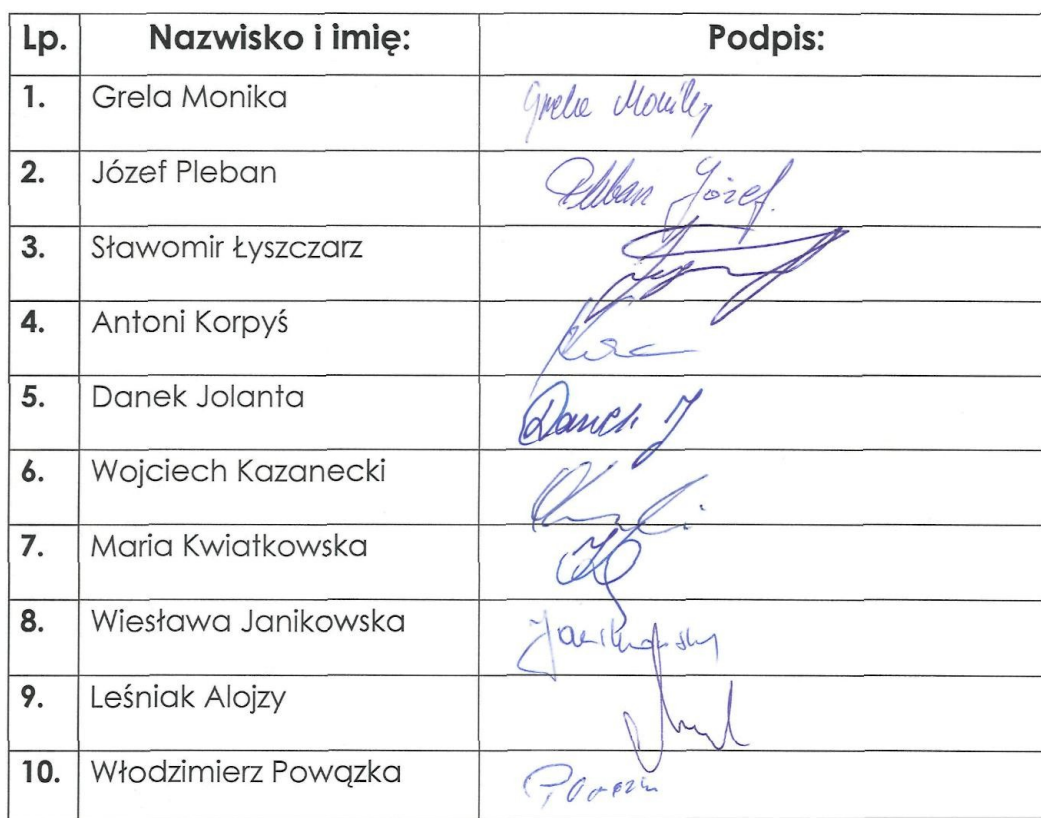 Lp. Nazwisko i imię: Podpis:
1. Grela Monika Grela Monika
2. Józef Pleban Pleban Józef
3. Sławomir Łyszczarz
4. Antoni Korpyś
5. Danek Jolanta Danek J
6. Wojciech Kazanecki
7. Maria Kwiatkowska
8. Wiesława Janikowska
9. Leśniak Alojzy
10. Włodzimierz Powązka